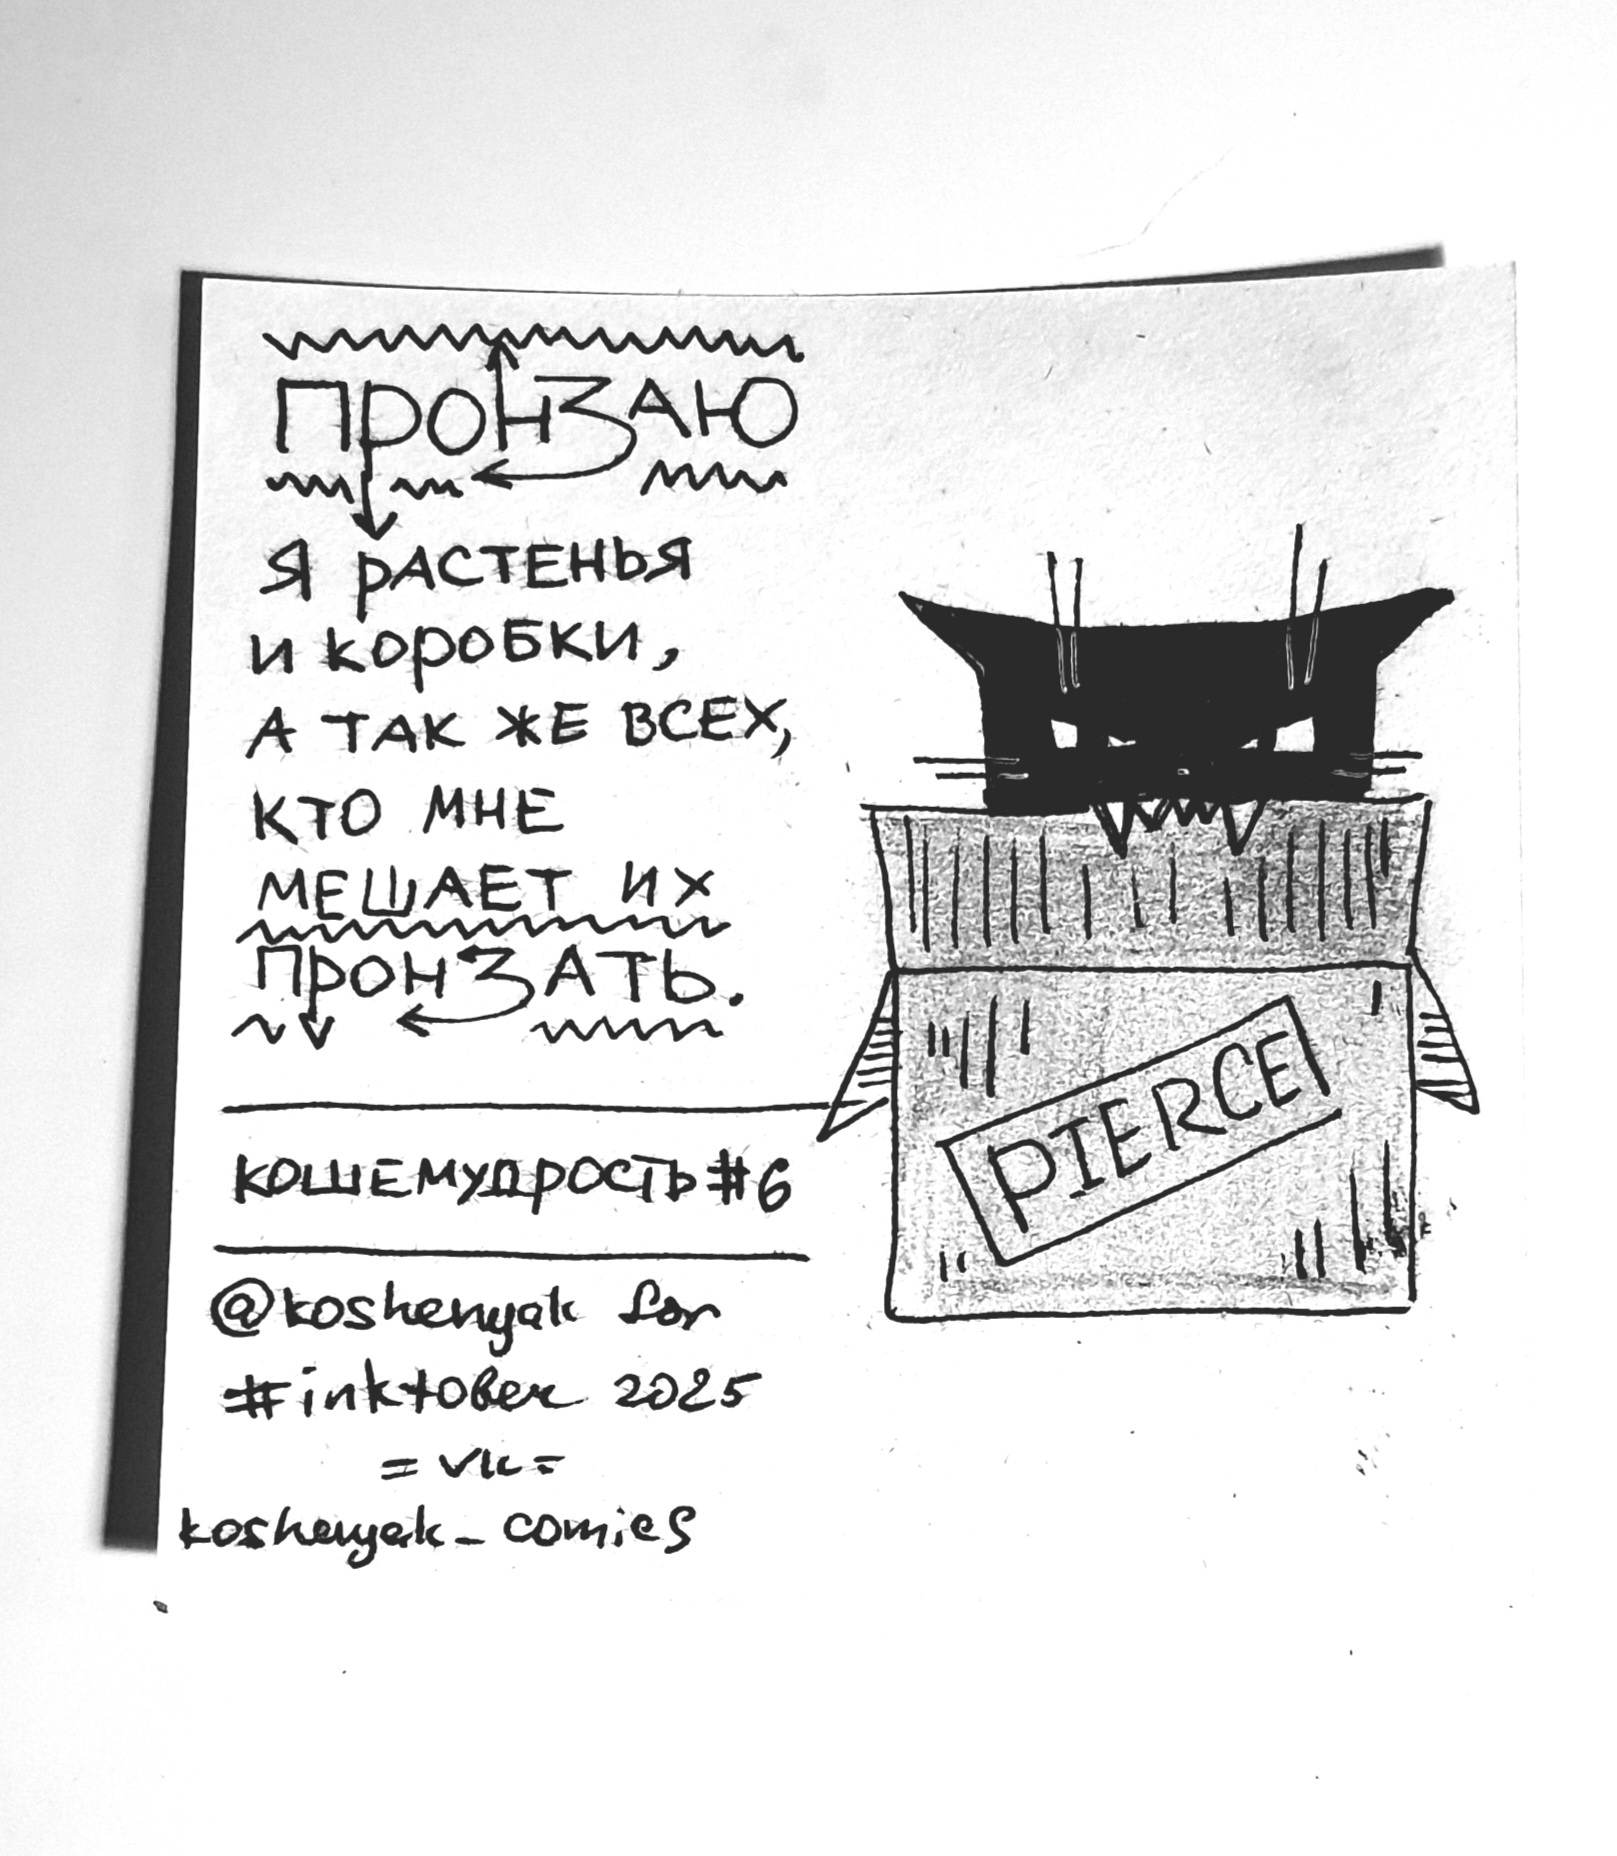 ПРОНЗАЮ
Я РАСТЕНЬЯ
И КОРОБКИ,
А ТАК ЖЕ ВСЕХ,
КТО МНЕ
МЕШАЕТ ИХ
ПРОНЗАТЬ.
КОШЕМУДРОСТЬ #6
@koshenyak for
#inktober 2025
= vk =
koshenyak_comics
PIERCE